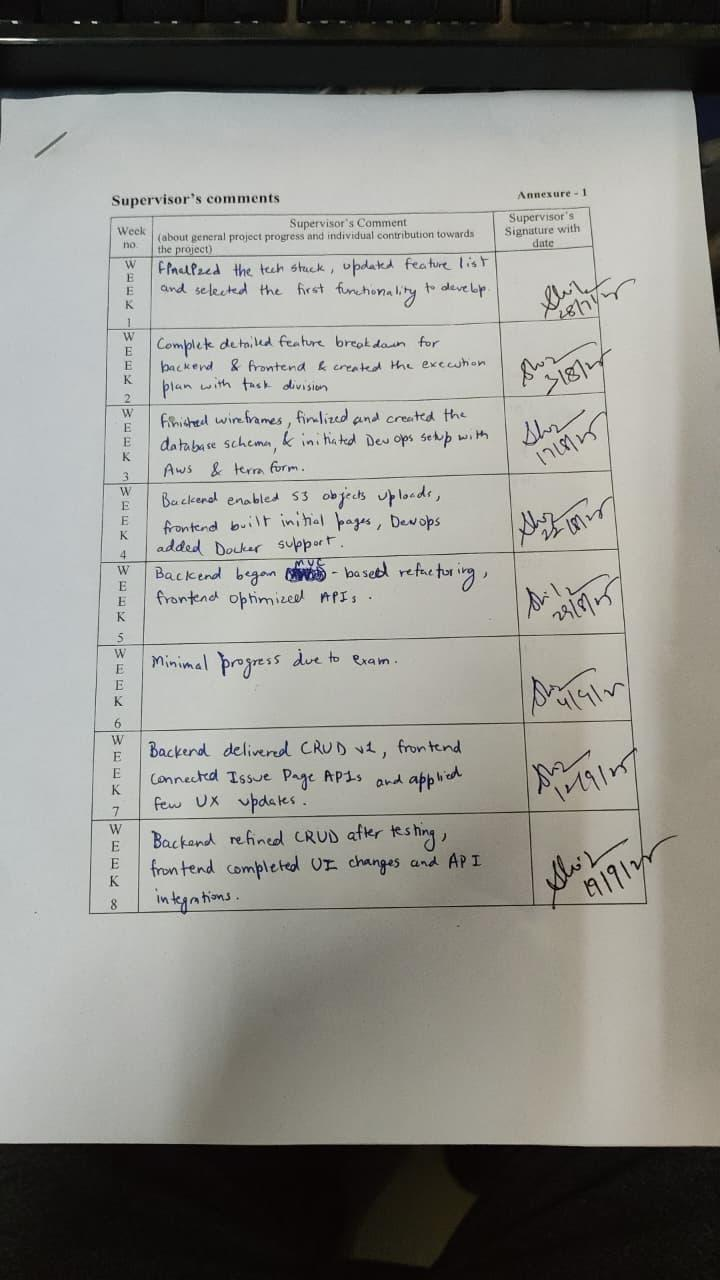 Supervisor's comments
Annexure - 1
Week no.
Supervisor's Comment
(about general project progress and individual contribution towards
the project)
Supervisor's
Signature with
date
WEEK 1
Finalized the tech stack, updated feature list
and selected the first functionality to develop.
28/7/25
WEEK 2
Complete detailed feature breakdown for
backend & frontend & created the execution
plan with task division
3/8/25
WEEK 3
Finished wireframes, finalized and created the
database schema, & initiated Devops setup with
Aws & terraform.
17/8/25
WEEK 4
Backend enabled S3 objects uploads,
frontend built initial pages, Devops
added Docker support.
22/8/25
WEEK 5
Backend began MVC - based refactoring,
frontend optimized APIs.
29/8/25
WEEK 6
Minimal progress due to exam.
4/9/25
WEEK 7
Backend delivered CRUD v1, frontend
connected Issue Page APIs and applied
few UX updates.
12/9/25
WEEK 8
Backend refined CRUD after testing,
frontend completed UI changes and API
integrations.
19/9/25